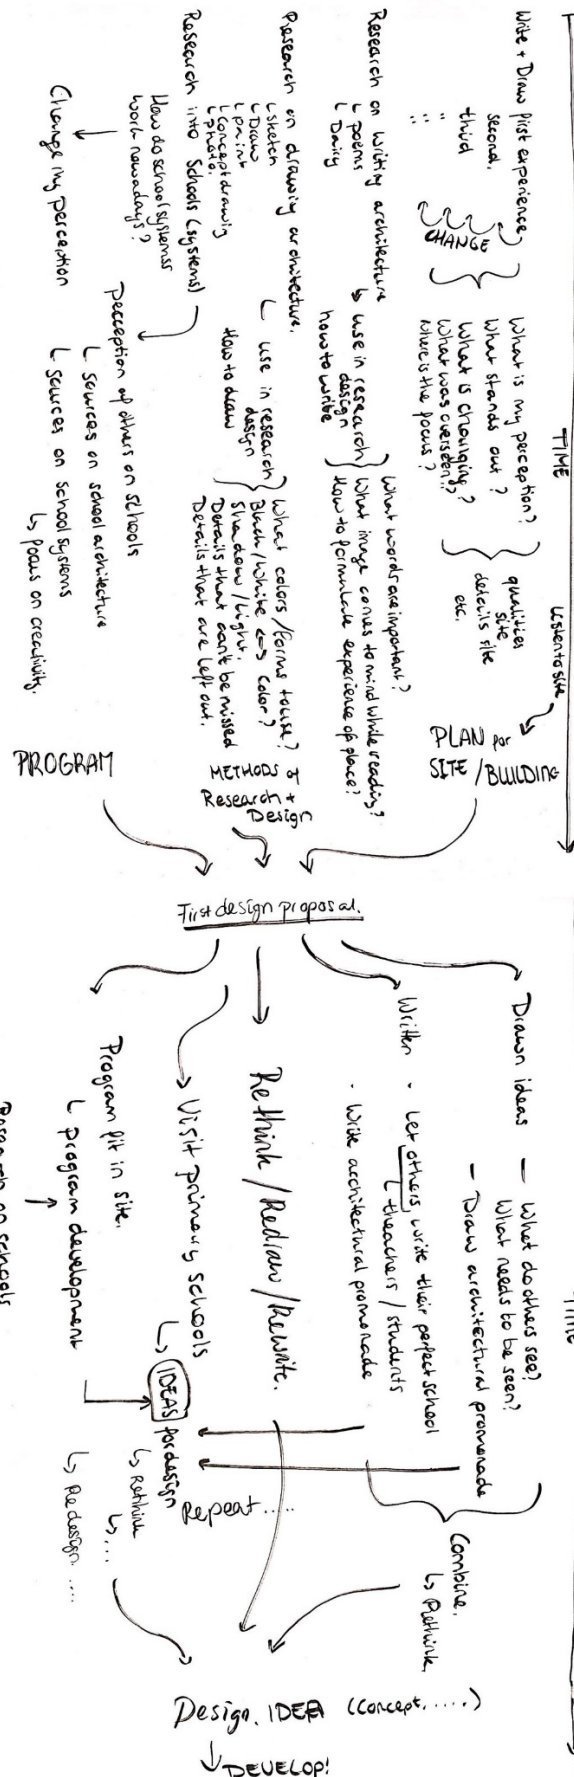 TIME
Write + Draw first experience,
second,
third
" "
" "
CHANGE
What is my perception?
What stands out?
What is changing?
What was overseen?
Where is the focus?
qualities
site
details site
etc.
Listen to site
PLAN for
SITE / BUILDING
Research on writing architecture
poems
Dairy
use in research
design
how to write
What words are important?
What image comes to mind while reading?
How to formulate experience of place?
Research on drawing architecture.
sketch
Draw
paint
Concept drawing
Photo.
use in research
design
How to draw
What colors / forms to use?
Black / White Color?
Shadow / Light.
Details that can't be missed
Details that are left out.
METHODS of
Research +
Design
Research into Schools (systems)
How do school systems
work nowadays?
Change my perception
perception of others on schools
sources on school architecture
sources on school systems
focus on creativity.
PROGRAM
First design proposal.
TIME
Drawn ideas — What do others see?
What needs to be seen?
— Draw architectural promonade
Written · Let others write their perfect school
theachers / students
· Write architectural promonade
Combine.
Rethink.
Rethink / Redraw / Rewrite.
Visit primary schools
IDEAS for design
Rethink
...
Repeat .....
Program fit in site.
program development
Redesign .....
Research on schools
Design. IDEA (Concept, .....)
DEVELOP!